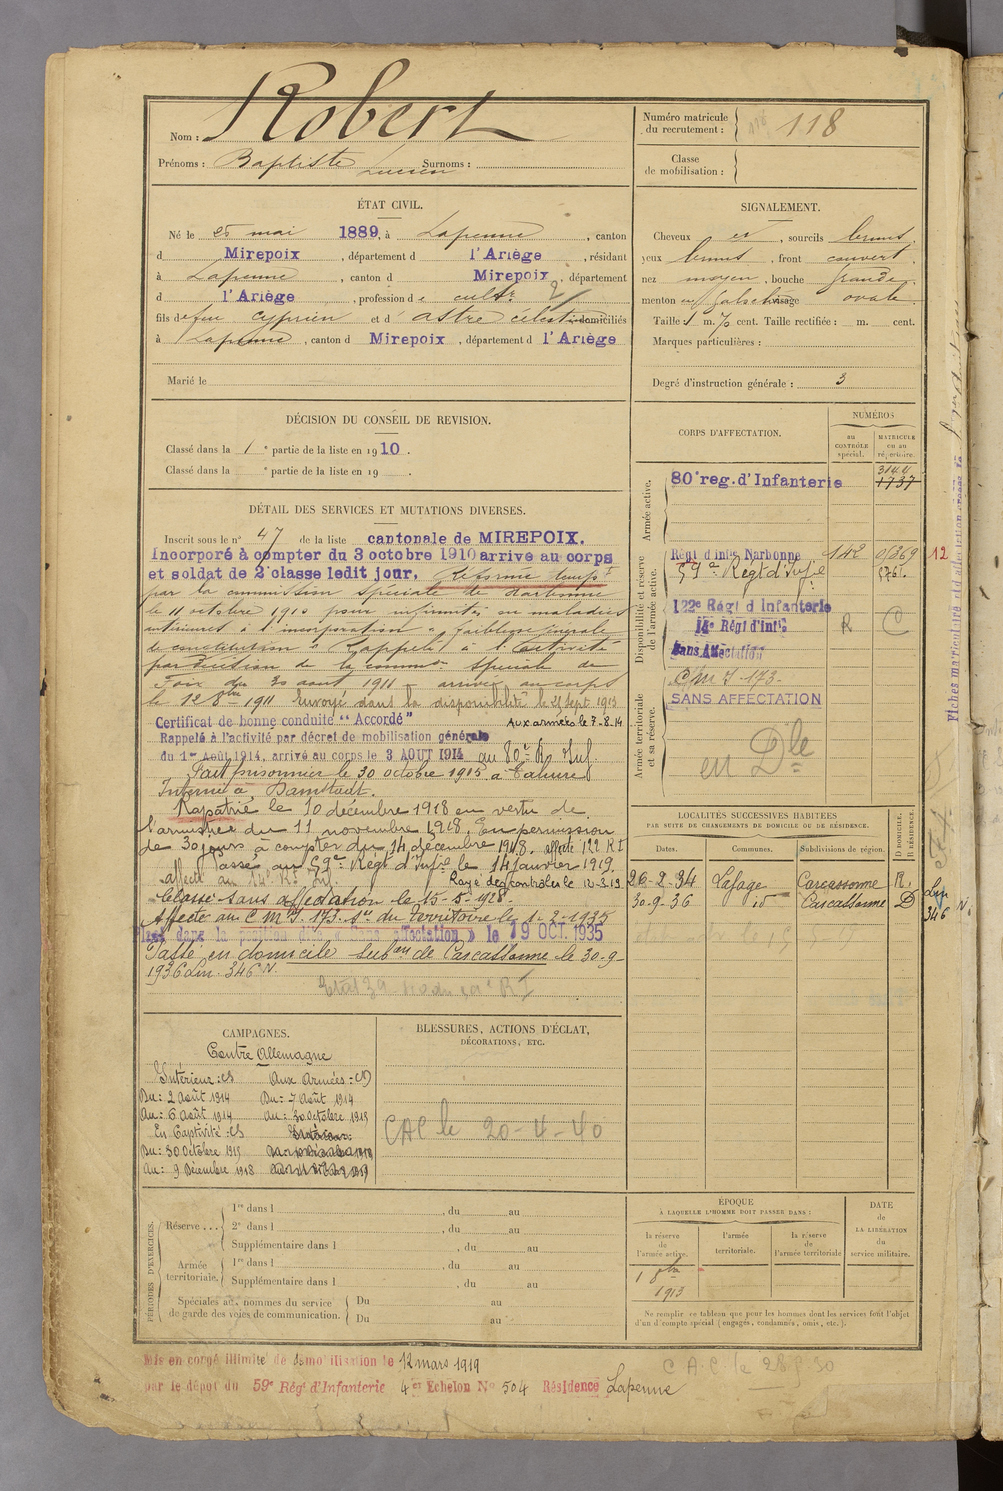 Nom : Robert
Prénoms : Baptiste Lucien Surnoms :
Numéro matricule du recrutement : 118
Classe de mobilisation :
ÉTAT CIVIL.
Né le 25 mai 1889, à Lapenne, canton
d Mirepoix, département d l'Ariège, résidant
à Lapenne, canton d Mirepoix, département
d l'Ariège, profession de cultr
fils de feu Cyprien et d' Astre Célestine domiciliés
à Lapenne, canton d Mirepoix, département d l'Ariège
Marié le
SIGNALEMENT.
Cheveux et, sourcils bruns.
yeux bruns, front couvert.
nez moyen, bouche grande.
menton visage ovale.
Taille : 1 m. 70 cent. Taille rectifiée : m. cent.
Marques particulières :
Degré d'instruction générale : 3
DÉCISION DU CONSEIL DE REVISION.
Classé dans la 1e partie de la liste en 1910.
Classé dans la e partie de la liste en 19 .
DÉTAIL DES SERVICES ET MUTATIONS DIVERSES.
Inscrit sous le n° 47 de la liste cantonale de MIREPOIX.
Incorporé à compter du 3 octobre 1910 arrivé au corps
et soldat de 2e classe ledit jour. Réformé tempt
par la commission spéciale de Narbonne
le 11 octobre 1910 pour infirmités ou maladies
antérieures à l'incorporation "faiblesse générale
de constitution" Rappelé à l'activité
par décision de la common spéciale de
Foix du 20 aout 1911 - arrivé au corps
le 12 8bre 1911 Envoyé dans la disponibilité le 25 Sept. 1913
Certificat de bonne conduite "Accordé" Aux armées le 7-8-14
Rappelé à l'activité par décret de mobilisation générale
du 1er Août 1914, arrivé au corps le 3 AOUT 1914 au 80e R Inf.
Fait prisonnier le 30 octobre 1915 à Tahure
Interné à Damstadt.
Rapatrié le 10 décembre 1918 en vertu de
l'armistice du 11 novembre 1918. En permission
de 30 jours à compter du 14 décembre 1918. affecté 122 RI
Passé au 59e Régt d'Infie le 14 janvier 1919.
Affecté au 14e Rt Inf. Rayé des contrôles le 12-3-19
Classé sans affectation le 15-5-1928.
Affecté au C M I. 173. Son du Territoire le 1-2-1935
Placé dans la position dite « Sans affectation » le 19 OCT. 1935
Passé en domicile subon de Carcassonne le 30-9-
1936 Lin. 346 N.
CORPS D'AFFECTATION.
NUMÉROS
au CONTRÔLE spécial.
MATRICULE ou au répertoire.
Armée active.
80e reg. d'Infanterie 3144 1737
Disponibilité et réserve de l'armée active.
Régt d'Infie Narbonne 142 0/369 12
59e Régt d'Infie 5761.
122e Régt d'Infanterie
14e Régt d'Infie R C
Sans Affectation
Armée territoriale et sa réserve.
C M I 173.
SANS AFFECTATION
en Dle
LOCALITÉS SUCCESSIVES HABITÉES
PAR SUITE DE CHANGEMENTS DE DOMICILE OU DE RÉSIDENCE.
Dates. Communes. Subdivisions de région. D DOMICILE. R RÉSIDENCE.
26-2-34 Lafage Carcassonne R.
30-9-36 id Carcassonne D Lin. 346 N.
CAMPAGNES.
Contre Allemagne
Intérieur : CS
Du : 2 Août 1914
Au : 6 Août 1914
En Captivité : CS
Du : 30 Octobre 1915
Au : 9 Décembre 1918
Aux Armées : CD
Du : 7 Août 1914
Au : 30 Octobre 1915
BLESSURES, ACTIONS D'ÉCLAT,
DÉCORATIONS, ETC.
CAC le 20-4-40
PÉRIODES D'EXERCICES.
Réserve ... 1re dans l , du au
2e dans l , du au
Supplémentaire dans l , du au
Armée territoriale. 1re dans l , du au
Supplémentaire dans l , du au
Spéciales aux hommes du service de garde des voies de communication. Du au
Du au
ÉPOQUE
À LAQUELLE L'HOMME DOIT PASSER DANS :
la réserve de l'armée active.
l'armée territoriale.
la réserve de l'armée territoriale
DATE de LA LIBÉRATION du service militaire.
1 8bre 1913
Ne remplir ce tableau que pour les hommes dont les services font l'objet
d'un décompte spécial (engagés, condamnés, omis, etc.).
Mis en congé illimité de démobilisation le 12 mars 1919
par le dépôt du 59e Régt d'Infanterie 4e Echelon No 504 Résidence Lapenne